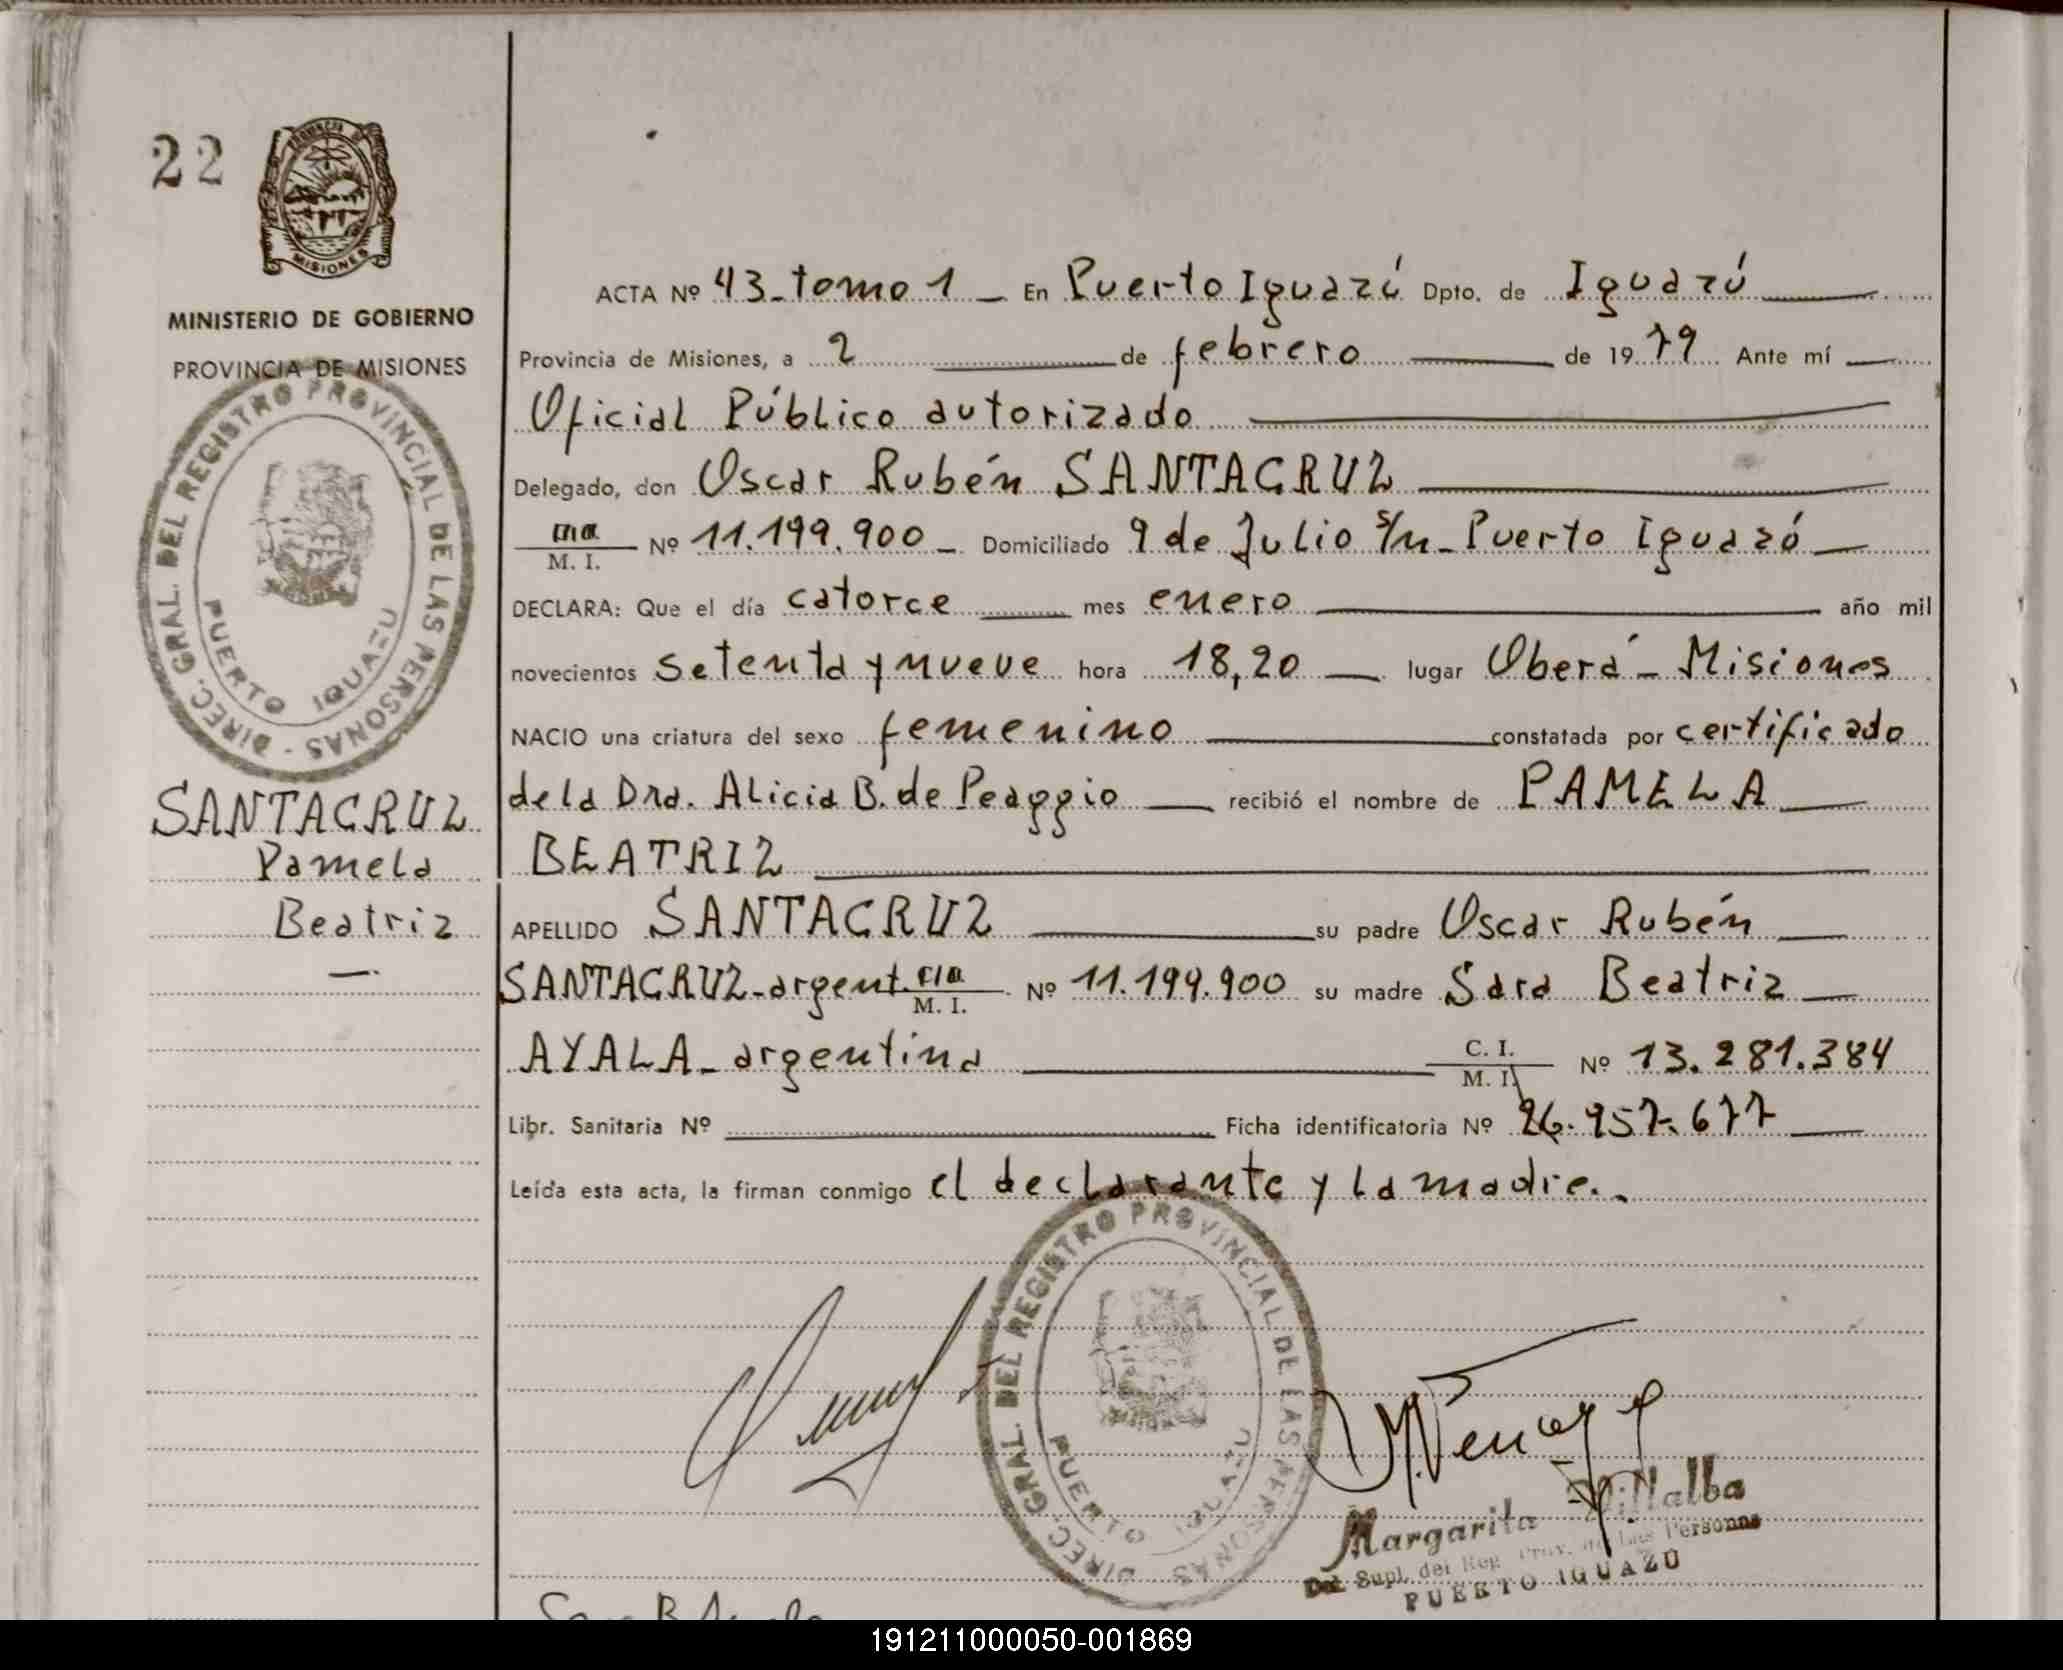 22
PROVINCIA DE
MISIONES
MINISTERIO DE GOBIERNO
PROVINCIA DE MISIONES
DIREC. GRAL. DEL REGISTRO PROVINCIAL DE LAS PERSONAS -
PUERTO IGUAZU
SANTACRUZ
Pamela
Beatriz
ACTA Nº 43-tomo 1 - En Puerto Iguazú Dpto. de Iguazú
Provincia de Misiones, a 2 de febrero de 1979 Ante mí
Oficial Público autorizado
Delegado, don Oscar Rubén SANTACRUZ
M. I. Nº 11.199.900 - Domiciliado 9 de Julio s/n - Puerto Iguazú
DECLARA: Que el día catorce mes enero año mil
novecientos setenta y nueve hora 18,20 lugar Oberá - Misiones
NACIO una criatura del sexo femenino constatada por certificado
de la Dra. Alicia B. de Peaggio recibió el nombre de PAMELA
BEATRIZ
APELLIDO SANTACRUZ su padre Oscar Rubén
SANTACRUZ - argent. M. I. Nº 11.199.900 su madre Sara Beatriz
AYALA - argentina C. I. M. I. Nº 13.281.384
Libr. Sanitaria Nº Ficha identificatoria Nº 26.957.677
Leída esta acta, la firman conmigo el declarante y la madre.
DIREC. GRAL. DEL REGISTRO PROVINCIAL DE LAS PERSONAS
PUERTO IGUAZU
Margarita Villalba
Del. Supl. del Reg. Prov. de las Personas
PUERTO IGUAZU
191211000050-001869